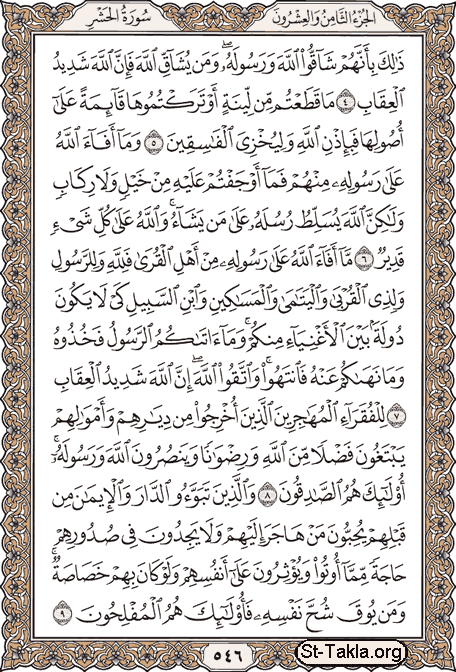 الجزء الثامن والعشرون سورة الحشر
ذَٰلِكَ بِأَنَّهُمْ شَاقُّوا۟ ٱللَّهَ وَرَسُولَهُۥ ۖ وَمَن يُشَآقِّ ٱللَّهَ فَإِنَّ ٱللَّهَ شَدِيدُ
ٱلْعِقَابِ ٤ مَا قَطَعْتُم مِّن لِّينَةٍ أَوْ تَرَكْتُمُوهَا قَآئِمَةً عَلَىٰٓ
أُصُولِهَا فَبِإِذْنِ ٱللَّهِ وَلِيُخْزِىَ ٱلْفَٰسِقِينَ ٥ وَمَآ أَفَآءَ ٱللَّهُ
عَلَىٰ رَسُولِهِۦ مِنْهُمْ فَمَآ أَوْجَفْتُمْ عَلَيْهِ مِنْ خَيْلٍ وَلَا رِكَابٍ
وَلَٰكِنَّ ٱللَّهَ يُسَلِّطُ رُسُلَهُۥ عَلَىٰ مَن يَشَآءُ ۚ وَٱللَّهُ عَلَىٰ كُلِّ شَىْءٍ
قَدِيرٌ ٦ مَّآ أَفَآءَ ٱللَّهُ عَلَىٰ رَسُولِهِۦ مِنْ أَهْلِ ٱلْقُرَىٰ فَلِلَّهِ وَلِلرَّسُولِ
وَلِذِى ٱلْقُرْبَىٰ وَٱلْيَتَٰمَىٰ وَٱلْمَسَٰكِينِ وَٱبْنِ ٱلسَّبِيلِ كَىْ لَا يَكُونَ
دُولَةًۢ بَيْنَ ٱلْأَغْنِيَآءِ مِنكُمْ ۚ وَمَآ ءَاتَىٰكُمُ ٱلرَّسُولُ فَخُذُوهُ
وَمَا نَهَىٰكُمْ عَنْهُ فَٱنتَهُوا۟ ۚ وَٱتَّقُوا۟ ٱللَّهَ ۖ إِنَّ ٱللَّهَ شَدِيدُ ٱلْعِقَابِ
٧ لِلْفُقَرَآءِ ٱلْمُهَٰجِرِينَ ٱلَّذِينَ أُخْرِجُوا۟ مِن دِيَٰرِهِمْ وَأَمْوَٰلِهِمْ
يَبْتَغُونَ فَضْلًا مِّنَ ٱللَّهِ وَرِضْوَٰنًا وَيَنصُرُونَ ٱللَّهَ وَرَسُولَهُۥٓ ۚ
أُو۟لَٰٓئِكَ هُمُ ٱلصَّٰدِقُونَ ٨ وَٱلَّذِينَ تَبَوَّءُو ٱلدَّارَ وَٱلْإِيمَٰنَ مِن
قَبْلِهِمْ يُحِبُّونَ مَنْ هَاجَرَ إِلَيْهِمْ وَلَا يَجِدُونَ فِى صُدُورِهِمْ
حَاجَةً مِّمَّآ أُوتُوا۟ وَيُؤْثِرُونَ عَلَىٰٓ أَنفُسِهِمْ وَلَوْ كَانَ بِهِمْ خَصَاصَةٌ ۚ
وَمَن يُوقَ شُحَّ نَفْسِهِۦ فَأُو۟لَٰٓئِكَ هُمُ ٱلْمُفْلِحُونَ ٩
٥٤٦
St-Takla.org